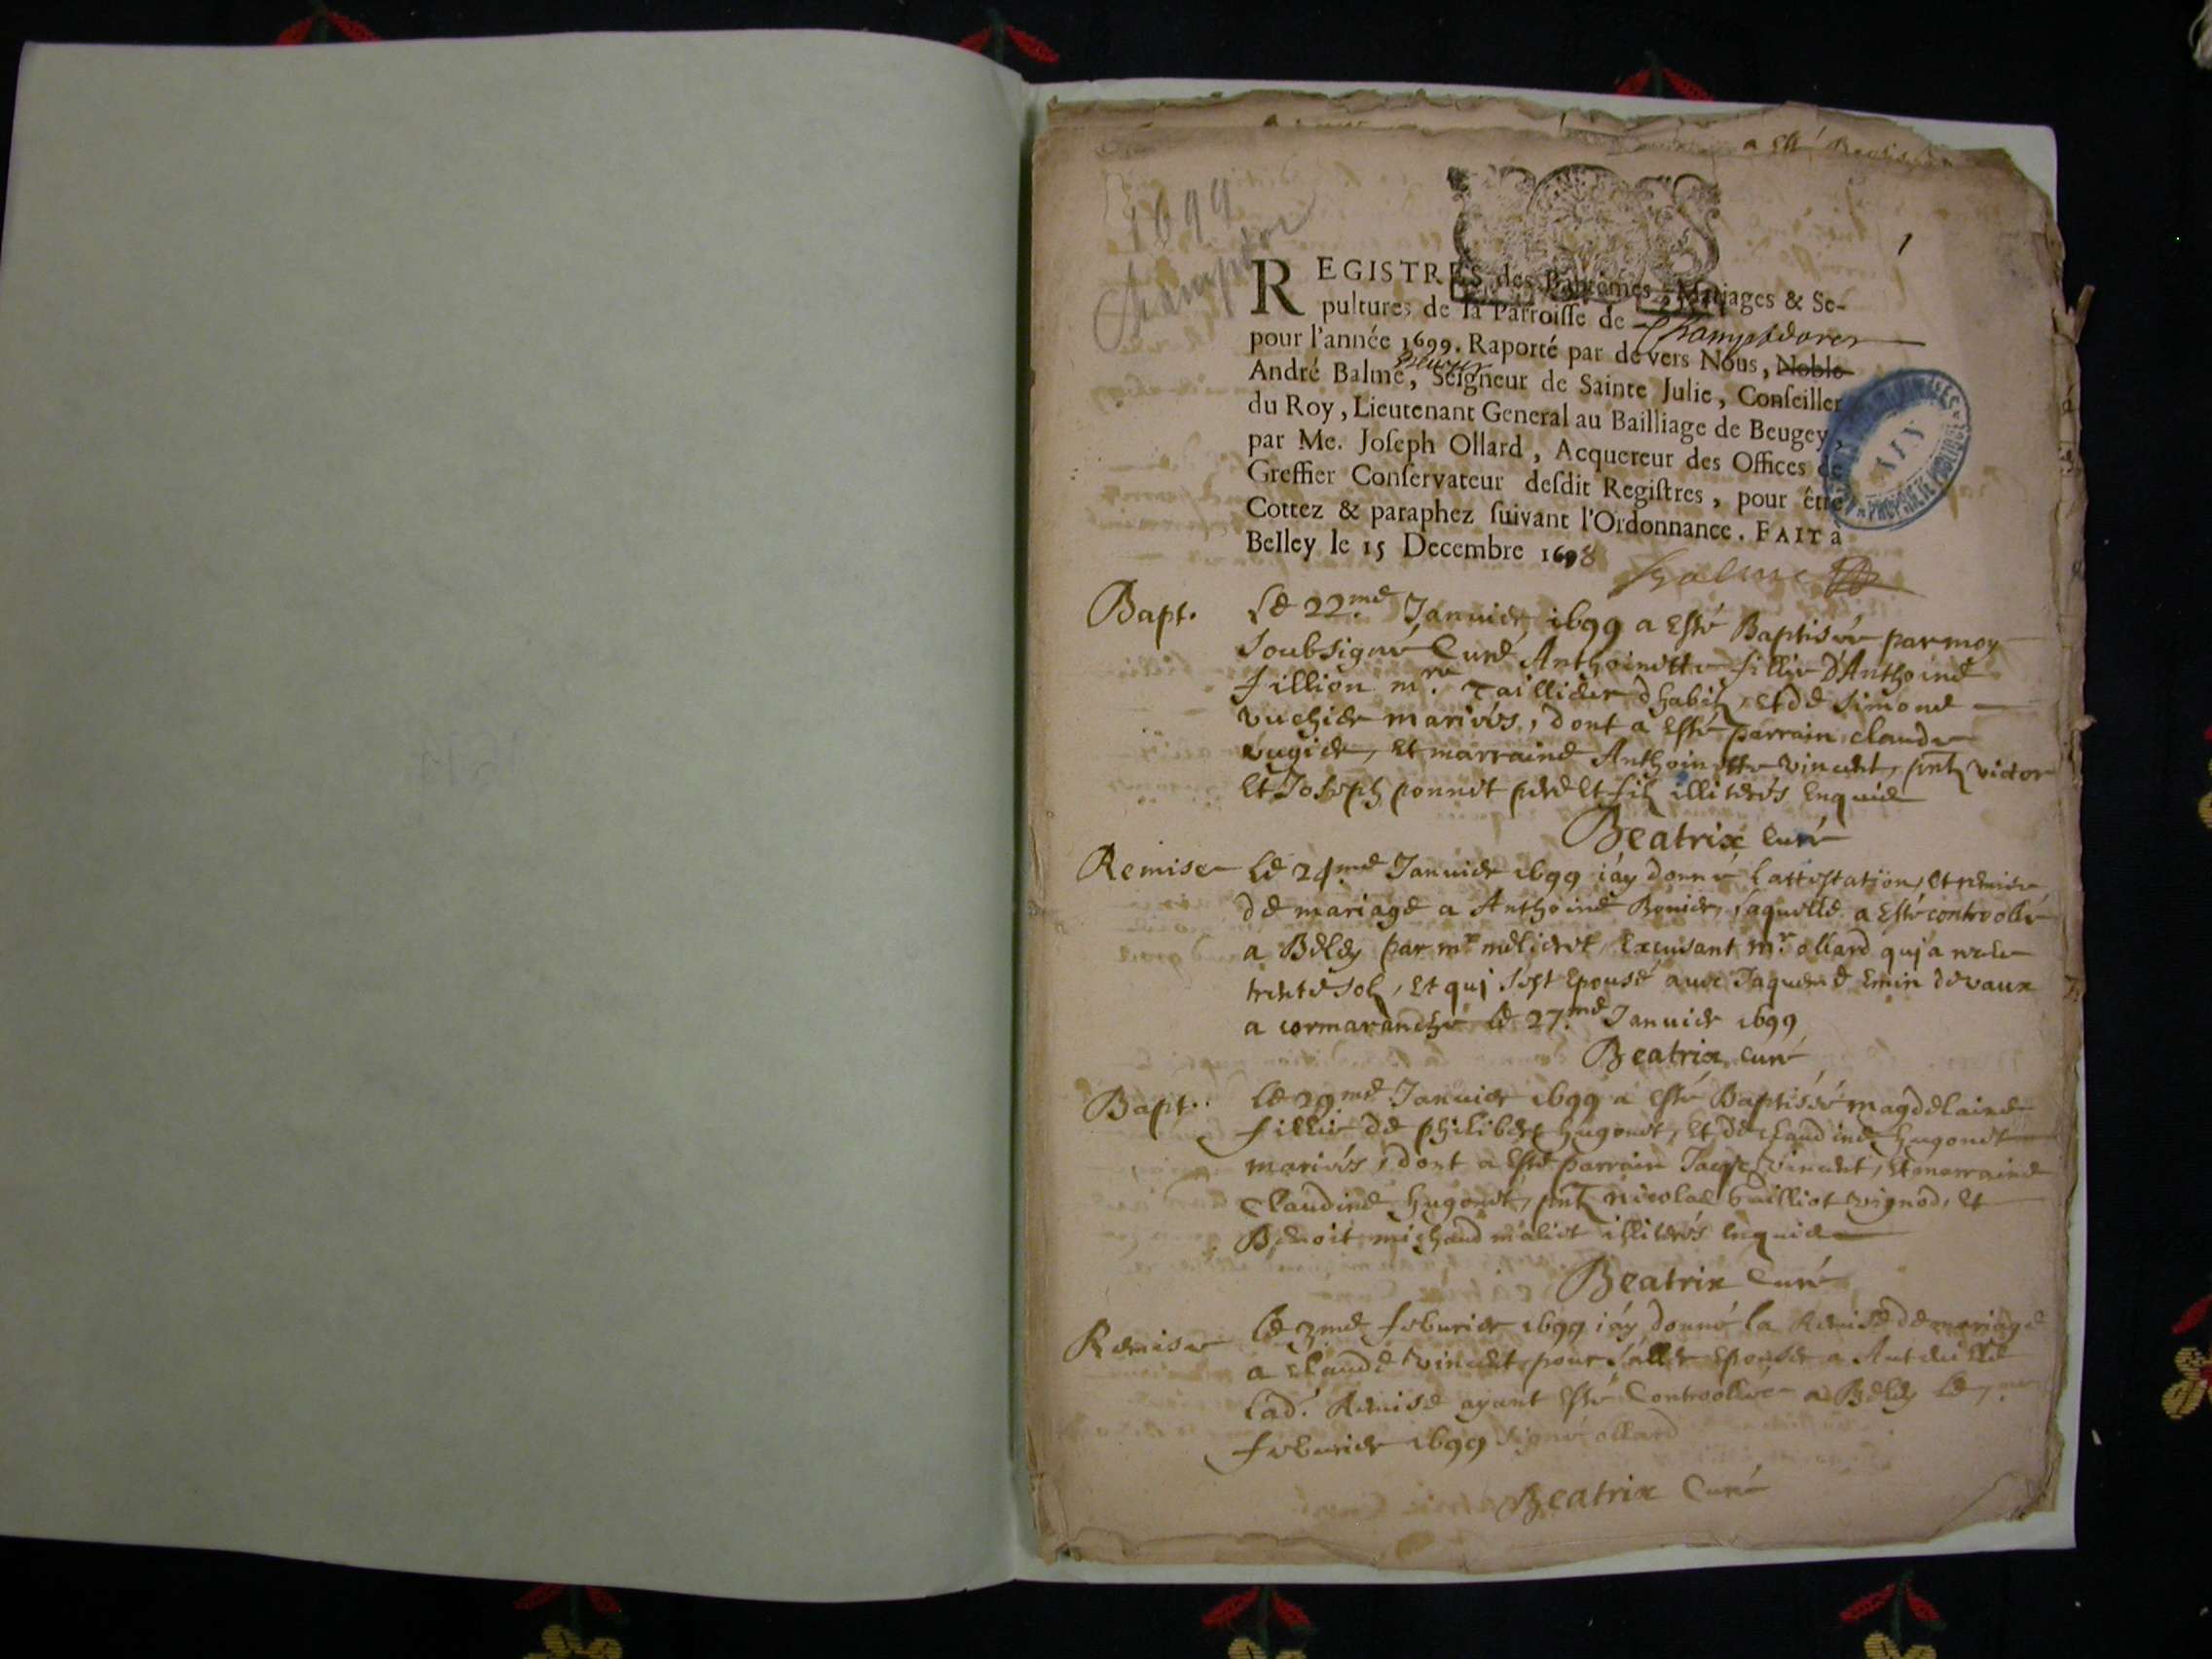 a esté
1
1699
Champdor
REGISTRES des Baptêmes, Mariages & Se-
pultures de la Parroisse de Champdorer
pour l'année 1699. Raporté par devers Nous, Noble
André Balme, Seigneur de Sainte Julie, Conseiller
du Roy, Lieutenant General au Bailliage de Beugey,
par Me. Joseph Ollard, Acquereur des Offices de
Greffier Conservateur desdit Registres, pour être
Cottez & paraphez suivant l'Ordonnance. FAIT à
Belley le 15 Decembre 1698
Balme
AIN
PROPRIETE PUBLIQUE
Bapt. Le 22.me Januier 1699 a esté Baptisée par moy
soubsigné Curé Anthoinette fillie D'Anthoine
fillion m.re Taillieur dhabitz, et de Simone
vuchier mariés, dont a esté parrain claude
et marraine Anthoinette vincent, pntz victor
et Joseph ponnet pere et filz illiterés enquis
Beatrix Curé
Remise Le 24.me Januier 1699 iáy donné l'attestation, et remise
de mariage a Anthoine Bonier, laquelle a esté controollé
a Beley par mr melieret, Excusant m.r ollard quj a receu
trente solz, et quj s'est epousé auec Jaquemé Emin devaux
a cormaranche le 27.me Januier 1699
Beatrix Curé
Bapt. Le 29.me Januier 1699 a esté Baptisée magdelaine
fillie de philibert hugonet, et de claudine hugonet
mariés, dont a esté parrain Jacqs vincent, et marraine
Claudine hugonet, pntz nicolas Guilliot vignod, et
Benoit michaud maliet illiterés enquis
Beatrix Curé
Remise Le 3.me feburier 1699 iáy donné la Remise de mariage
a claude vincent pour s'aller epouser a
lad. Remise ayant esté Controollée a Beley le
feburier 1699 signé ollard
Beatrix Curé